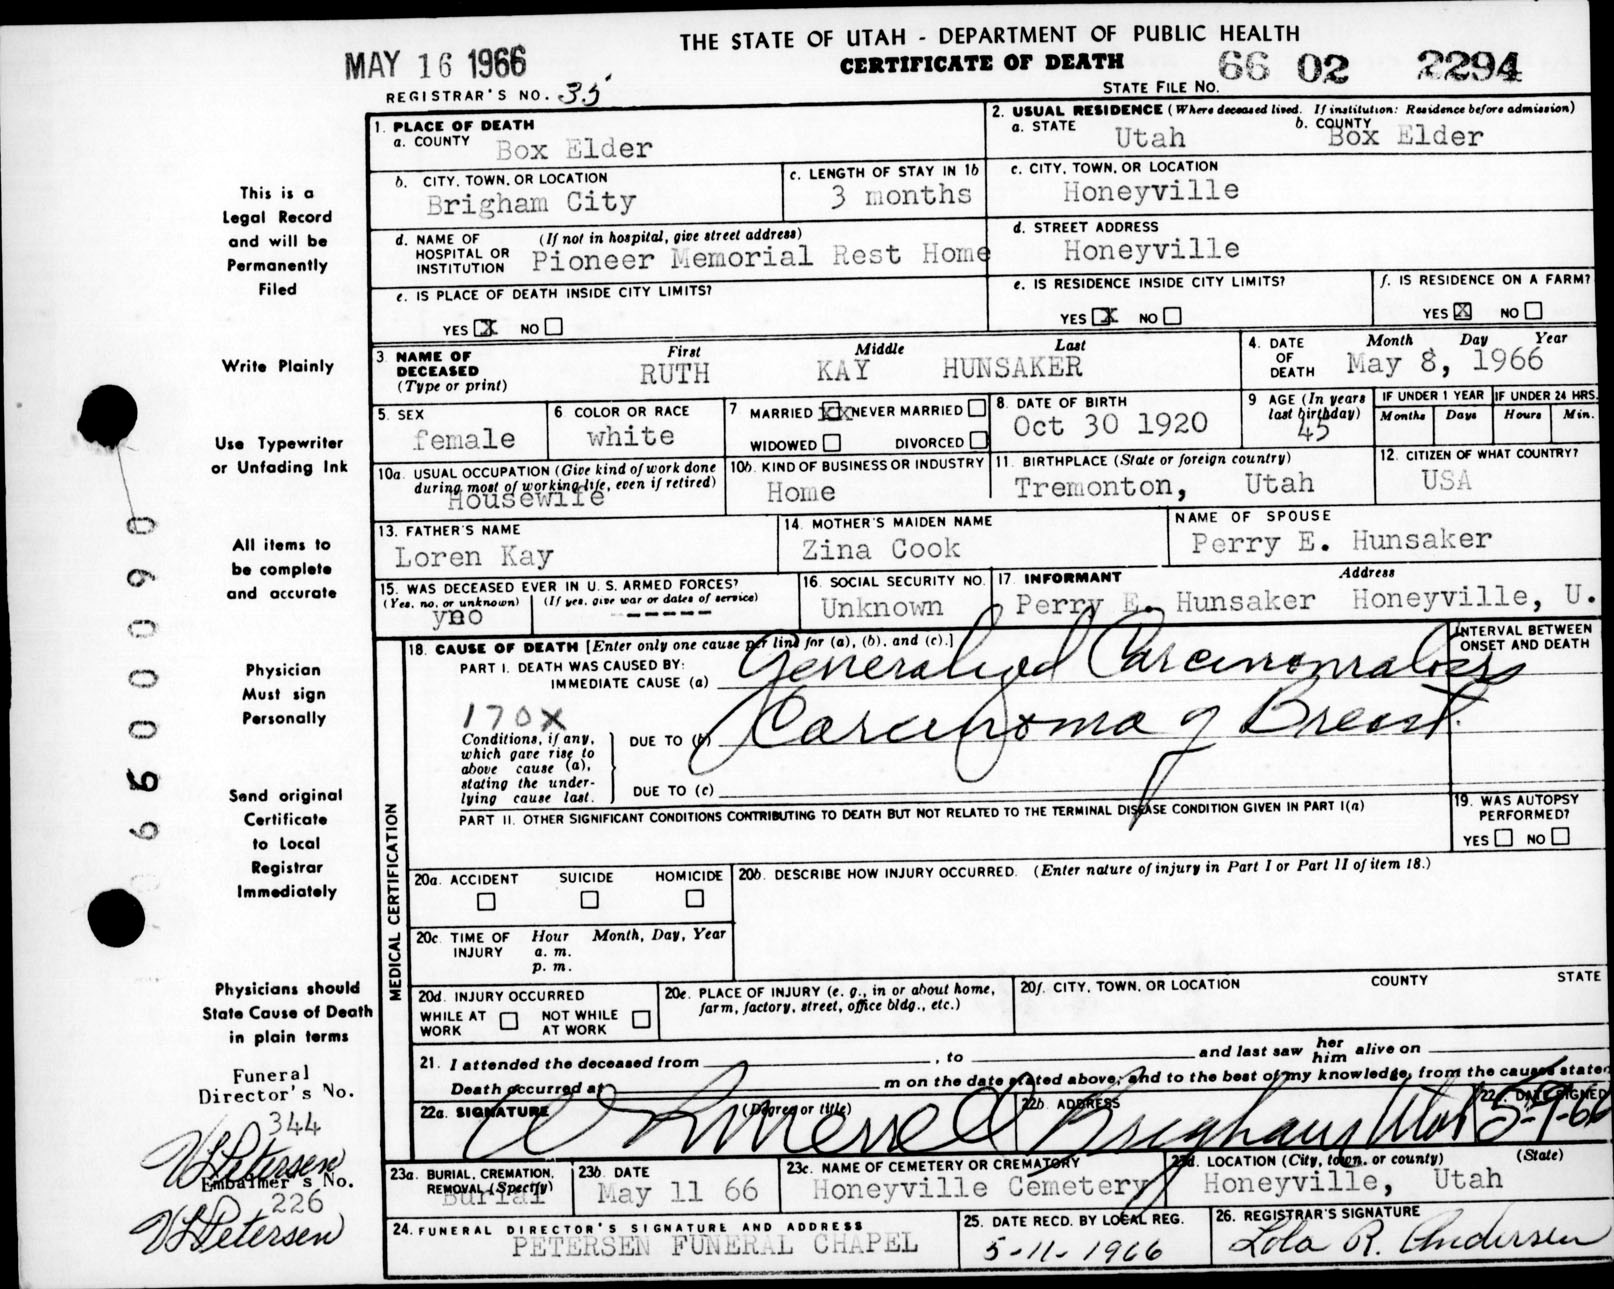 THE STATE OF UTAH - DEPARTMENT OF PUBLIC HEALTH
MAY 16 1966 CERTIFICATE OF DEATH 66 02 2294
REGISTRAR'S NO. 35 STATE FILE NO.
This is a
Legal Record
and will be
Permanently
Filed
Write Plainly
Use Typewriter
or Unfading Ink
All items to
be complete
and accurate
Physician
Must sign
Personally
Send original
Certificate
to Local
Registrar
Immediately
Physicians should
State Cause of Death
in plain terms
Funeral
Director's No.
344
V L Petersen
Embalmer's No.
226
V L Petersen
66000090
1. PLACE OF DEATH
a. COUNTY Box Elder
2. USUAL RESIDENCE (Where deceased lived. If institution: Residence before admission)
a. STATE Utah b. COUNTY Box Elder
b. CITY, TOWN, OR LOCATION Brigham City
c. LENGTH OF STAY IN 1b 3 months
c. CITY, TOWN, OR LOCATION Honeyville
d. NAME OF HOSPITAL OR INSTITUTION (If not in hospital, give street address) Pioneer Memorial Rest Home
d. STREET ADDRESS Honeyville
e. IS PLACE OF DEATH INSIDE CITY LIMITS?
YES X NO
e. IS RESIDENCE INSIDE CITY LIMITS?
YES X NO
f. IS RESIDENCE ON A FARM?
YES X NO
3. NAME OF DECEASED (Type or print) First Middle Last
RUTH KAY HUNSAKER
4. DATE OF DEATH Month Day Year
May 8, 1966
5. SEX female
6 COLOR OR RACE white
7 MARRIED XX NEVER MARRIED
WIDOWED DIVORCED
8. DATE OF BIRTH Oct 30 1920
9 AGE (In years last birthday) 45
IF UNDER 1 YEAR Months Days
IF UNDER 24 HRS. Hours Min.
10a. USUAL OCCUPATION (Give kind of work done during most of working life, even if retired) Housewife
10b. KIND OF BUSINESS OR INDUSTRY Home
11. BIRTHPLACE (State or foreign country) Tremonton, Utah
12. CITIZEN OF WHAT COUNTRY? USA
13. FATHER'S NAME Loren Kay
14. MOTHER'S MAIDEN NAME Zina Cook
NAME OF SPOUSE Perry E. Hunsaker
15. WAS DECEASED EVER IN U. S. ARMED FORCES?
(Yes, no, or unknown) (If yes, give war or dates of service)
no ------
16. SOCIAL SECURITY NO. Unknown
17. INFORMANT Address
Perry E. Hunsaker Honeyville, U.
MEDICAL CERTIFICATION
18. CAUSE OF DEATH [Enter only one cause per line for (a), (b), and (c).]
INTERVAL BETWEEN ONSET AND DEATH
PART I. DEATH WAS CAUSED BY:
IMMEDIATE CAUSE (a) Generalized Carcinomatosis
170X
Conditions, if any, which gave rise to above cause (a), stating the underlying cause last.
DUE TO (b) Carcinoma of Breast.
DUE TO (c)
PART II. OTHER SIGNIFICANT CONDITIONS CONTRIBUTING TO DEATH BUT NOT RELATED TO THE TERMINAL DISEASE CONDITION GIVEN IN PART I(a)
19. WAS AUTOPSY PERFORMED?
YES NO
20a. ACCIDENT SUICIDE HOMICIDE
20b. DESCRIBE HOW INJURY OCCURRED. (Enter nature of injury in Part I or Part II of item 18.)
20c. TIME OF INJURY Hour Month, Day, Year
a. m.
p. m.
20d. INJURY OCCURRED
WHILE AT WORK NOT WHILE AT WORK
20e. PLACE OF INJURY (e. g., in or about home, farm, factory, street, office bldg., etc.)
20f. CITY, TOWN, OR LOCATION COUNTY STATE
21. I attended the deceased from , to and last saw her him alive on
Death occurred at m on the date stated above; and to the best of my knowledge, from the causes stated
22a. SIGNATURE (Degree or title) Merrell
22b. ADDRESS Brigham, Utah
22c. DATE SIGNED 5-9-66
23a. BURIAL, CREMATION, REMOVAL (Specify) Burial
23b. DATE May 11 66
23c. NAME OF CEMETERY OR CREMATORY Honeyville Cemetery
23d. LOCATION (City, town, or county) (State)
Honeyville, Utah
24. FUNERAL DIRECTOR'S SIGNATURE AND ADDRESS
PETERSEN FUNERAL CHAPEL
25. DATE RECD. BY LOCAL REG.
5-11-1966
26. REGISTRAR'S SIGNATURE
Lola R. Andersen